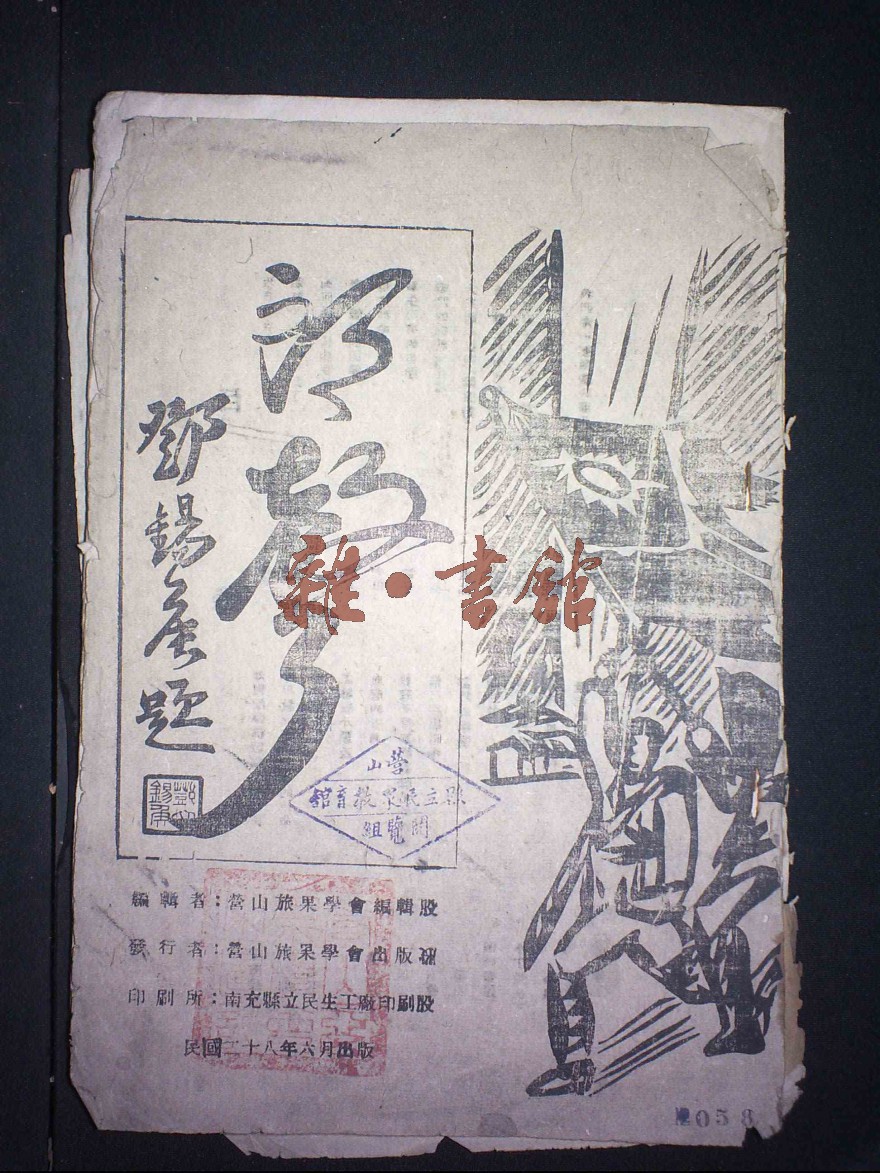 朗聲
鄧錫侯題
雜·書館
營山
縣立民眾教育館
閱覽組
編輯者：營山旅果學會編輯股
發行者：營山旅果學會出版股
印刷所：南充縣立民生工廠印刷股
民國二十八年六月出版
058